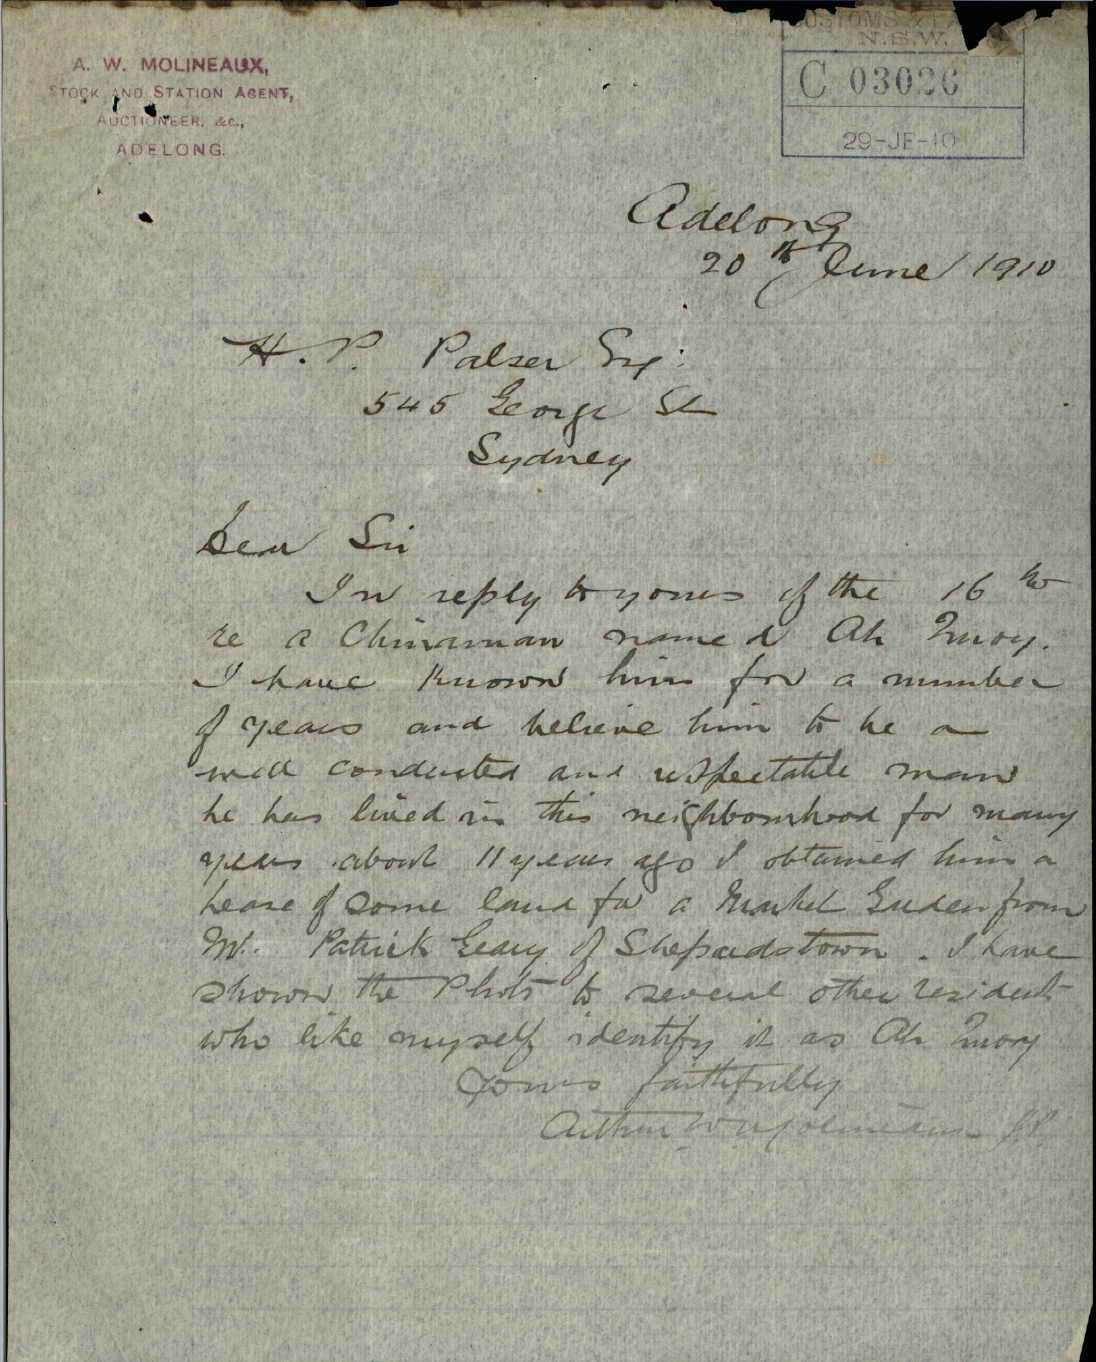 A. W. MOLINEAUX,
STOCK AND STATION AGENT,
AUCTIONEER, &C.,
ADELONG.
CUSTOMS
N.S.W.
C 03026
29-JE-10
Adelong
20th June 1910
H. P. Palser Esq:
545 George St
Sydney
Dear Sir
In reply to yours of the 16th
re a Chinaman named Ah Quoy.
I have known him for a number
of years and believe him to be a
well conducted and respectable man
he has lived in this neighbourhood for many
years about 11 years ago I obtained him a
lease of some land for a Market Garden from
Mr. Patrick Geary of Shepardstown. I have
shown the Photo to several other residents
who like myself identify it as Ah Quoy
Yours faithfully
Arthur W Molineaux JP